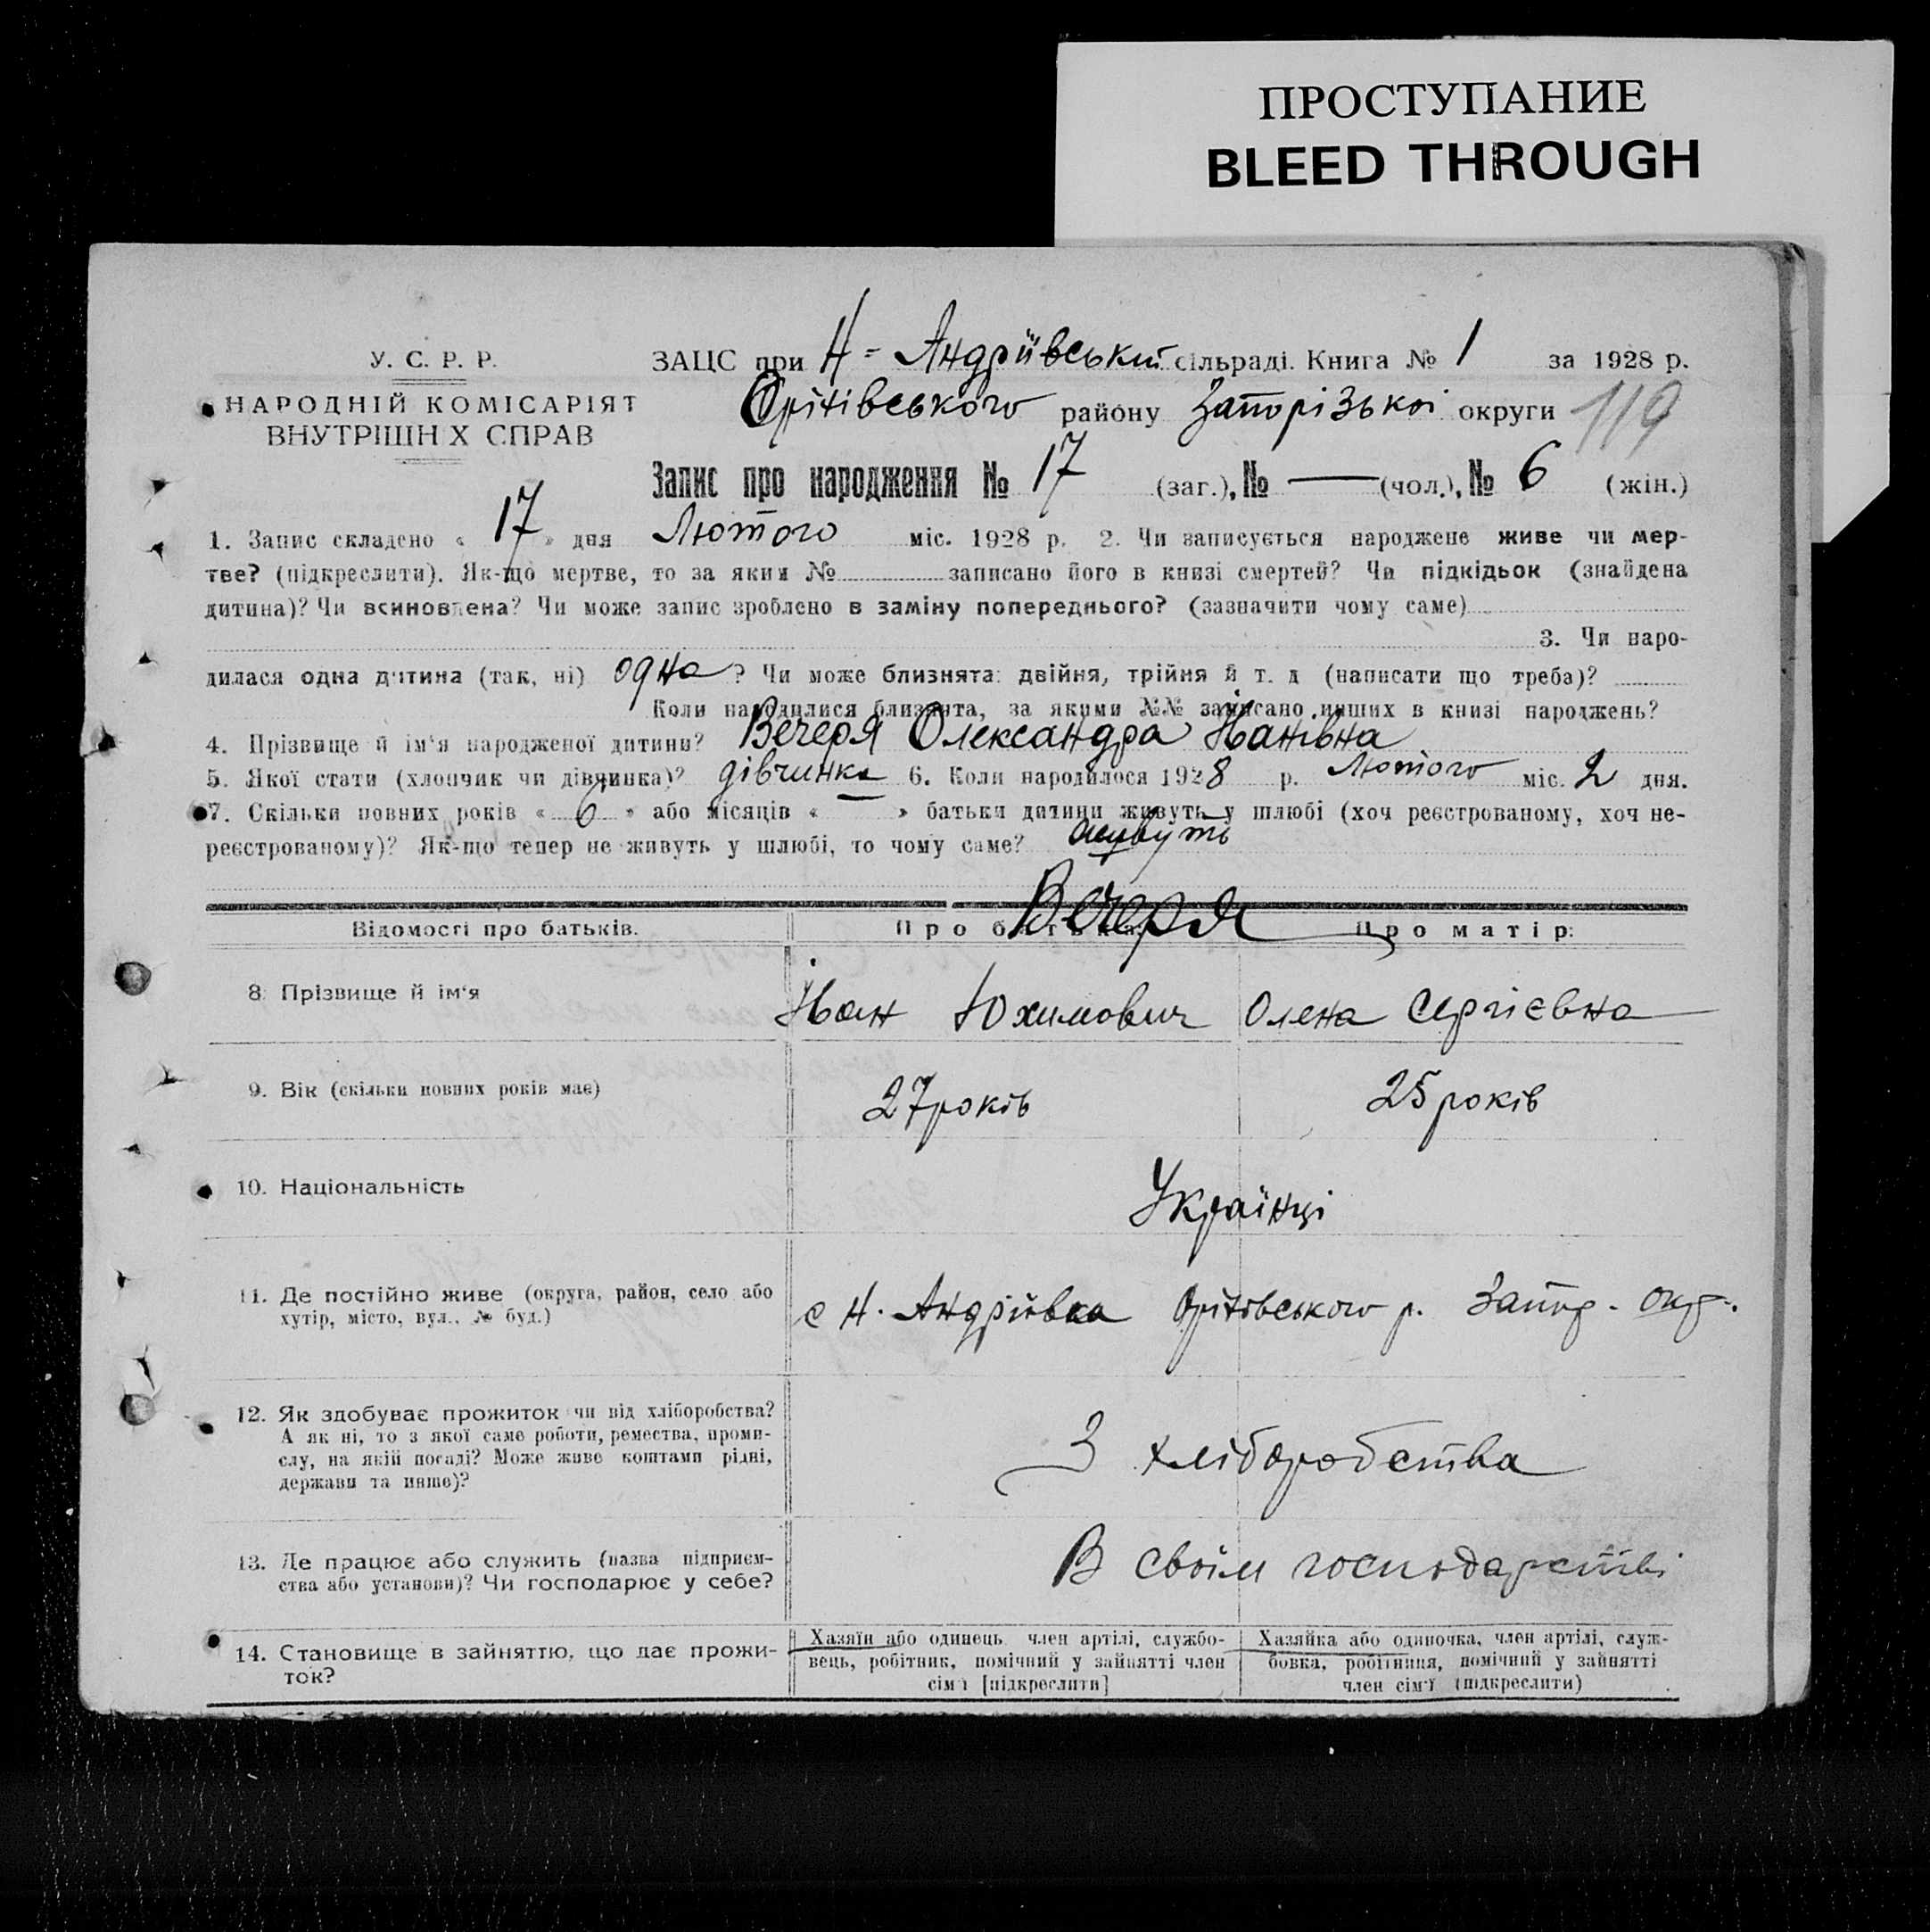 ПРОСТУПАНИЕ
BLEED THROUGH
У. С. Р. Р.
НАРОДНІЙ КОМІСАРІЯТ
ВНУТРІШН Х СПРАВ
ЗАЦС при Н-Андріївський сільраді. Книга № 1 за 1928 р.
Оріхівського району Запорізької округи 119
Запис про народження № 17 (заг.), № — (чол.), № 6 (жін.)
1. Запис складено « 17 » дня Лютого міс. 1928 р. 2. Чи записується народжене живе чи мер-
тве? (підкреслити). Як-що мертве, то за яким № записано його в книзі смертей? Чи підкідьок (знайдена
дитина)? Чи всиновлена? Чи може запис зроблено в заміну попереднього? (зазначити чому саме)
3. Чи наро-
дилася одна дитина (так, ні) одна ? Чи може близнята: двійня, трійня й т. д (написати що треба)?
Коли народилися близнята, за якими №№ записано инших в книзі народжень?
4. Прізвище й ім'я народженої дитини? Вечеря Олександра Іванівна
5. Якої стати (хлопчик чи дівчинка)? дівчинка 6. Коли народилося 1928 р. Лютого міс. 2 дня.
7. Скільки повних років « 6 » або місяців « — » батьки дитини живуть у шлюбі (хоч реєстрованому, хоч не-
реєстрованому)? Як-що тепер не живуть у шлюбі, то чому саме? живуть
Вечеря
Відомості про батьків. Про батька: Про матір:
8. Прізвище й ім'я Іван Юхимович Олена Сергієвна
9. Вік (скільки повних років має) 27 років 25 років
10. Національність Українці
11. Де постійно живе (округа, район, село або
хутір, місто, вул., № буд.) с Н. Андріївка Оріхівського р. Запор. окр.
12. Як здобуває прожиток чи від хліборобства?
А як ні, то з якої саме роботи, ремества, проми-
слу, на якій посаді? Може живе коштами рідні,
держави та инше)? З хліборобства
13. Де працює або служить (назва підприєм-
ства або установи)? Чи господарює у себе? В своїм господарстві
14. Становище в зайняттю, що дає прожи-
ток?
Хазяїн або одинець член артілі, службо-
вець, робітник, помічний у зайнятті член
сім'ї [підкреслити]
Хазяйка або одиночка, член артілі, служ-
бовка, робітниця, помічний у зайнятті
член сім'ї (підкреслити)